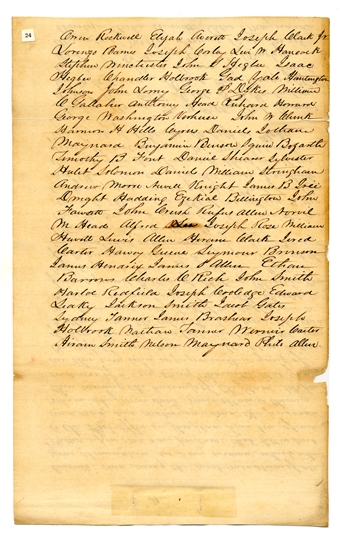 24
Orren Rockwell Elijah Averett Joseph Clark Jr
Lorenzo Barnes Joseph Corlay Levi W Hancock
Stephen Winchester John S Higbee Isaac
Higbee Chandler Holbrook Gad Yale Huntington
Johnson John Lowry George P Dykes William
C Gallaher Anthony Head Richard Howard
George Washington Voorhees John W Clark
Harmon H Hills Cyrus Daniels Jotham
Maynard Benjamin Benson Squire Bogarth
Timothy B Foot Daniel Shearer Sylvester
Hulet Solomon Daniel William Stringham
Andrew Moore Newell Knight James B
Dwight Hadding Ezekial Billington John
Fawcett John Crush Rufus Allen Norvil
M Head Alfred Joseph Rose William
Huvitt Lewis Allen Hiram Clark Jared
Carter Harvey Greene Seymour Brunson
James Hendrix James Allen Ethan
Barrows Charles C Rich John Smith
Harlow Redfield Joseph Coolidge Edward
Leaky Jackson Smith Jacob Gates
Sydney Tanner James Brashear Joseph
Holbrook Nathan Tanner Dominic Carter
Hiram Smith Nelson Maynard Philo Allen